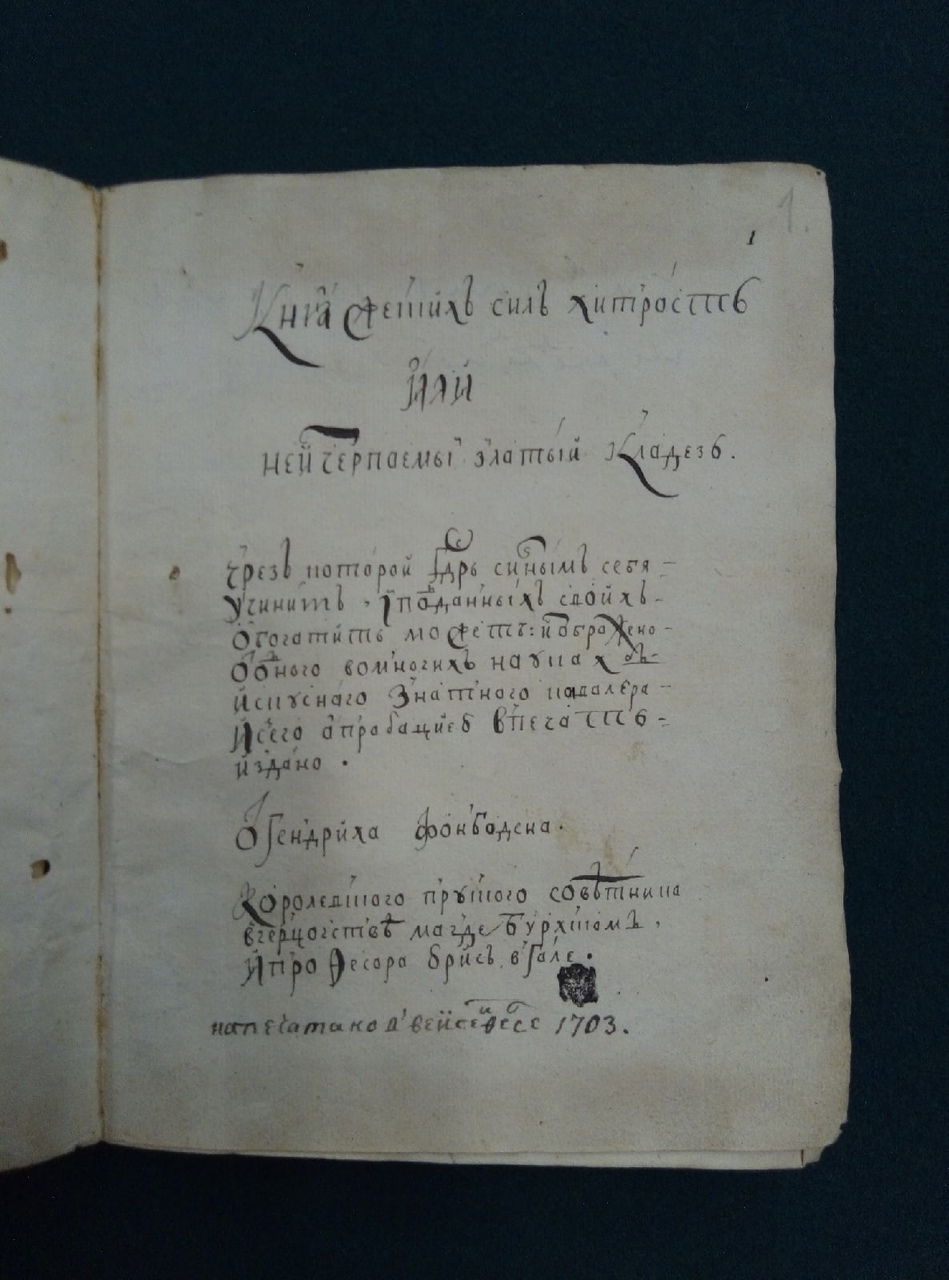 1.
1
Книга сѣетилъ силъ хитрость
или
неичерпаемы златый кладезь.
чрезъ которой гдрь силнымъ себя
учинитъ, іподанныхъ своихъ
обогатить можетъ: изображено
обного вомногихъ наукахъ
искуснаго знатнаго кавалера
исего апрабациею впечать
издано.
О Гендриха фонбодена.
Королевшого прушого совѣтника
вгерцогствѣ магдебурхшомъ,
ипрофесора брисъ вгале.
напечатано в вейсефесе 1703.